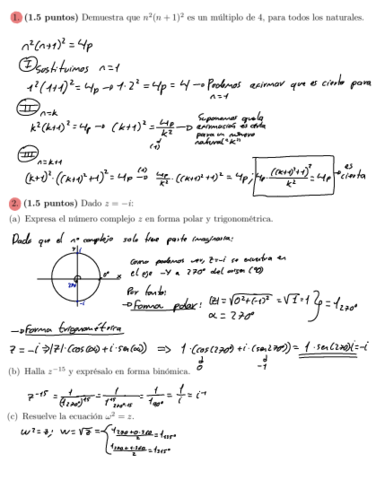 1. (1.5 puntos) Demuestra que n²(n + 1)² es un múltiplo de 4, para todos los naturales.
n²(n+1)² = 4p
I Sustituimos n=1
1²(1+1)² = 4p → 1·2² = 4p = 4 → Podemos afirmar que es cierto para n=1
II n=k
k²(k+1)² = 4p → (k+1)² = 4p/k² → Suponemos que la afirmación es cierta para un número natural "k"
(1)
III n=k+1
(k+1)²·((k+1)+1)² = 4p (1)→ 4p/k² · ((k+1)+1)² = 4p; 4p·((k+1)+1)²/k² = 4p → es cierta
2. (1.5 puntos) Dado z = −i:
(a) Expresa el número complejo z en forma polar y trigonométrica.
Dado que el nº complejo solo tiene parte imaginaria:
Como podemos ver, z=-i se encuentra en
el eje -Y a 270º del origen
Por tanto:
→ Forma polar: |z| = √0²+(-1)² = √1 = 1
α = 270º
= 1₂₇₀º
→ Forma trigonométrica
z = -i → |z|·(cos(α) + i·sen(α)) ⇒ 1·(cos(270º) + i·(sen(270º)) = 1·sen(270)i = -i
0 -1
(b) Halla z⁻¹⁵ y exprésalo en forma binómica.
(c) Resuelve la ecuación ω² = z.
w² = z; w = √z =